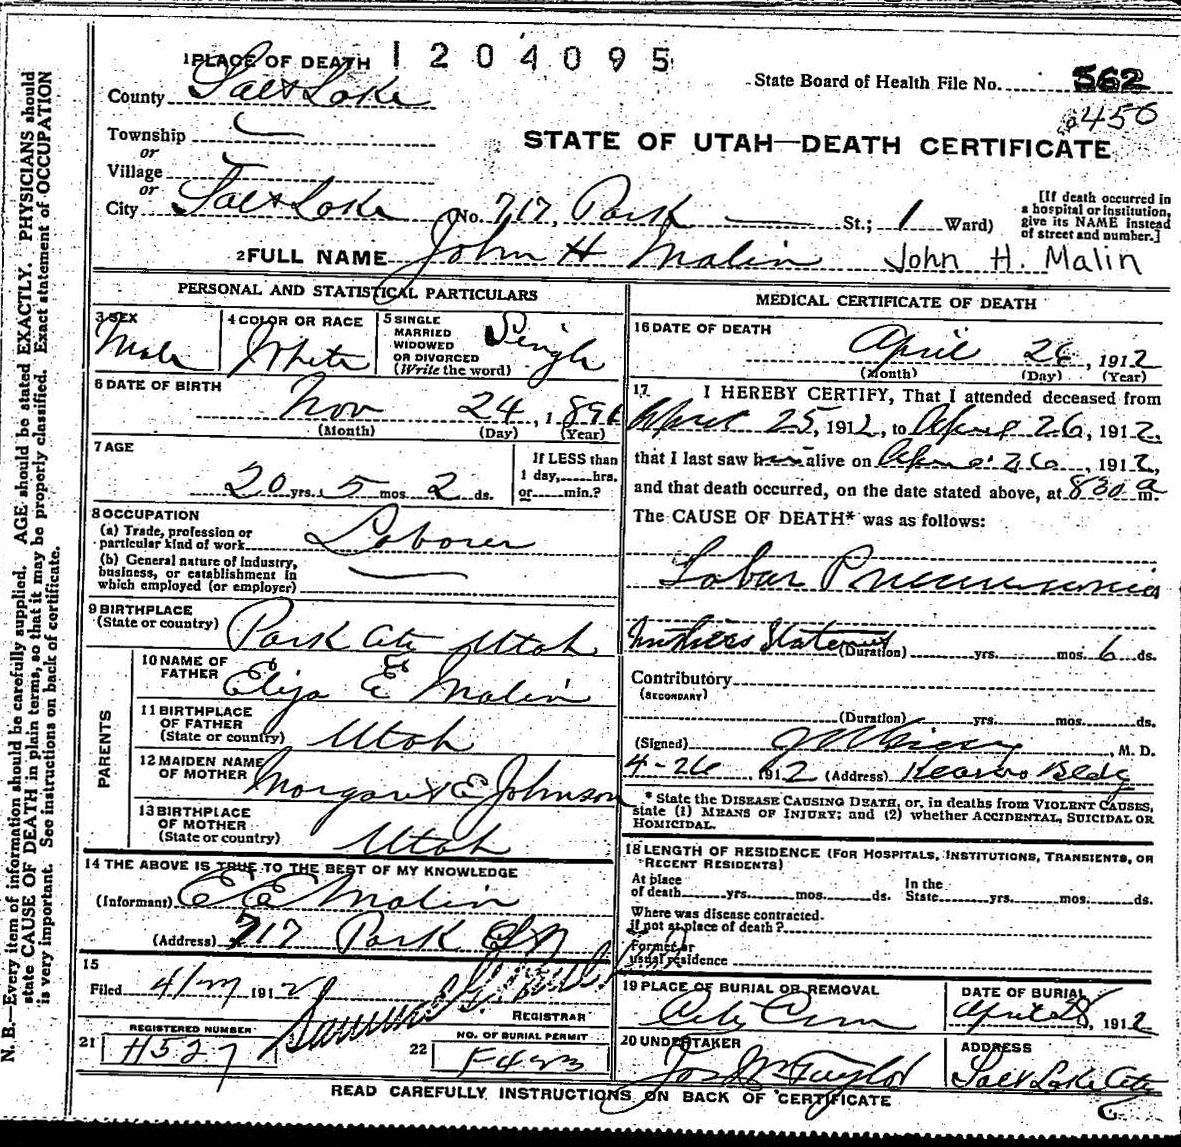 1 PLACE OF DEATH 1204095
State Board of Health File No. 562
450
County Salt Lake
STATE OF UTAH—DEATH CERTIFICATE
Township
or
Village
or
City Salt Lake No. 717, Park St.; 1 Ward)
[If death occurred in a hospital or institution, give its NAME instead of street and number.]
2 FULL NAME John H Malin John H. Malin
PERSONAL AND STATISTICAL PARTICULARS
3 SEX Male
4 COLOR OR RACE White
5 SINGLE MARRIED WIDOWED OR DIVORCED (Write the word) Single
6 DATE OF BIRTH
Nov 24, 1891
(Month) (Day) (Year)
7 AGE
20 yrs. 5 mos. 2 ds.
If LESS than
1 day, hrs.
or min.?
8 OCCUPATION
(a) Trade, profession or
particular kind of work Laborer
(b) General nature of industry,
business, or establishment in
which employed (or employer)
9 BIRTHPLACE
(State or country) Park City Utah
PARENTS
10 NAME OF FATHER E E Malin
11 BIRTHPLACE OF FATHER (State or country) Utah
12 MAIDEN NAME OF MOTHER Margaret E Johnson
13 BIRTHPLACE OF MOTHER (State or country) Utah
14 THE ABOVE IS TRUE TO THE BEST OF MY KNOWLEDGE
(Informant) E E Malin
(Address) 717 Park
15
Filed 4/27 1912
REGISTRAR
21 REGISTERED NUMBER H527
22 NO. OF BURIAL PERMIT
MEDICAL CERTIFICATE OF DEATH
16 DATE OF DEATH
April 26, 1912
(Month) (Day) (Year)
17 I HEREBY CERTIFY, That I attended deceased from
April 25, 1912, to April 26, 1912,
that I last saw him alive on April 26, 1912,
and that death occurred, on the date stated above, at 830 a m.
The CAUSE OF DEATH* was as follows:
Lobar Pneumonia
(Duration) yrs. mos. 6 ds.
Contributory
(SECONDARY)
(Duration) yrs. mos. ds.
(Signed) , M. D.
4-26, 1912 (Address) Kearns Bldg
* State the DISEASE CAUSING DEATH, or, in deaths from VIOLENT CAUSES,
state (1) MEANS OF INJURY; and (2) whether ACCIDENTAL, SUICIDAL OR
HOMICIDAL.
18 LENGTH OF RESIDENCE (FOR HOSPITALS, INSTITUTIONS, TRANSIENTS, OR
RECENT RESIDENTS)
At place
of death yrs. mos. ds. In the State yrs. mos. ds.
Where was disease contracted.
if not at place of death?
Former or
usual residence
19 PLACE OF BURIAL OR REMOVAL City Cem
DATE OF BURIAL April 28, 1912
20 UNDERTAKER Jos Wm Taylor
ADDRESS Salt Lake City
READ CAREFULLY INSTRUCTIONS ON BACK OF CERTIFICATE
N. B.—Every item of information should be carefully supplied. AGE should be stated EXACTLY. PHYSICIANS should
state CAUSE OF DEATH in plain terms, so that it may be properly classified. Exact statement of OCCUPATION
is very important. See instructions on back of certificate.